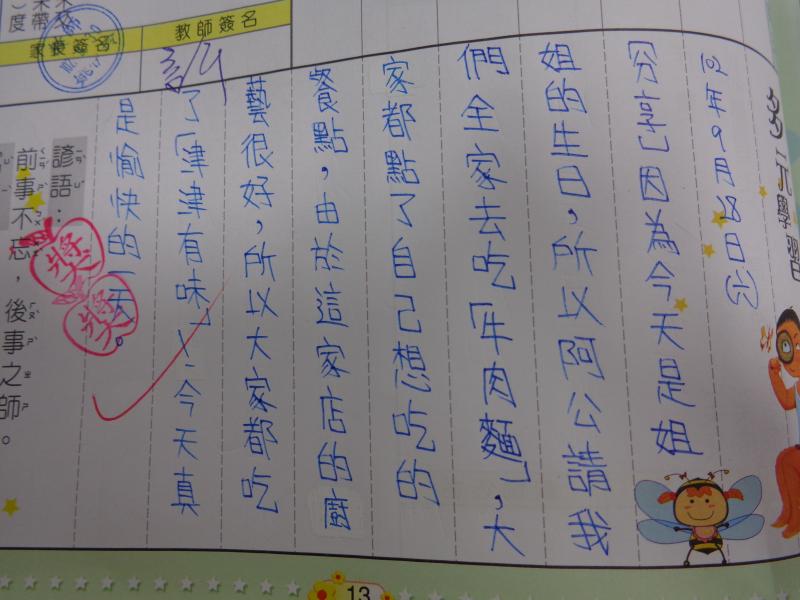 多元學習
102年9月28日(六)
分享:因為今天是姐
姐的生日,所以阿公請我
們全家去吃「牛肉麵」,大
家都點了自己想吃的
餐點,由於這家店的廚
藝很好,所以大家都吃
了「津津有味」~今天真
是愉快的一天。
獎
獎
教師簽名
家長簽名
諺語:
前事不忘,後事之師。
13